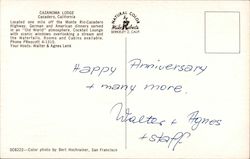 CAZANOMA LODGE
Cazadero, California
Located one mile off the Monte Rio-Cazadero
Highway. German and American dinners served
in an "Old World" atmosphere. Cocktail Lounge
with scenic windows overlooking a stream and
the Waterfalls. Rooms and Cabins available.
Your Hosts: Walter & Agnes Lenk
NATURAL COLOR
BERKELEY 2, CALIF.
Happy Anniversary
+ many more.
Walter + Agnes
+ staff
Color photo by Bert Hochwalner, San Francisco